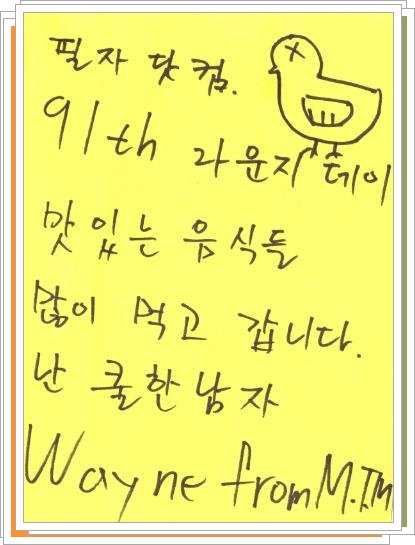 필자 닷컴.
91th 라운지 데이
맛있는 음식들
많이 먹고 갑니다.
난 쿨한 남자
Wayne from M.I.M